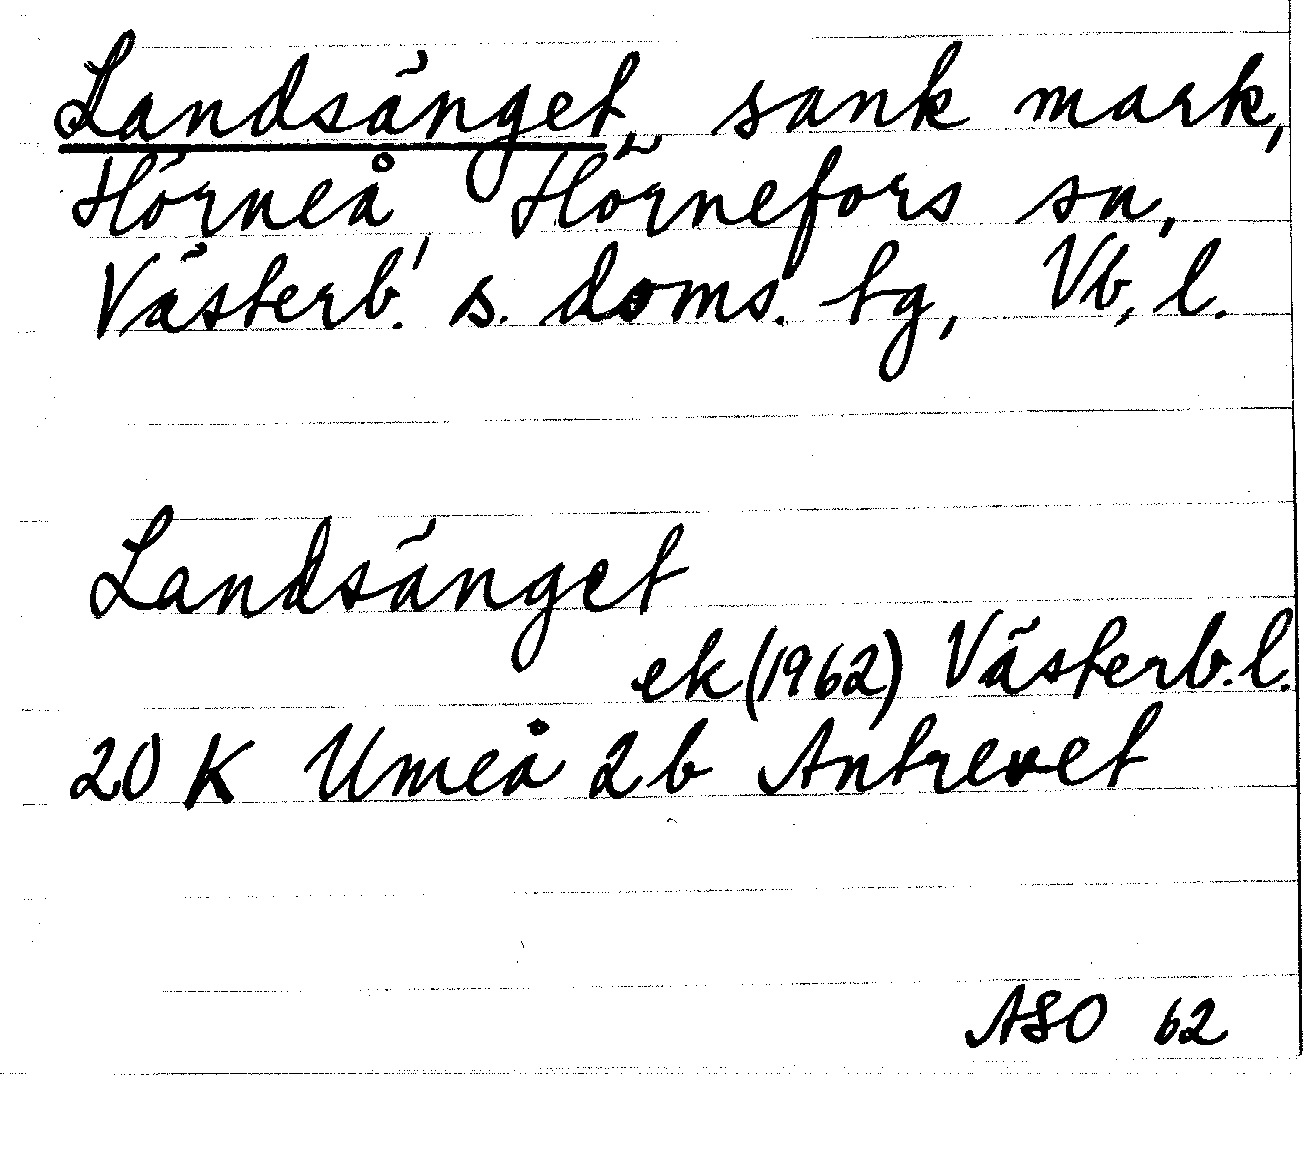 Landsänget, sank mark,
Hörneå, Hörnefors sn,
Västerb. s. doms. tg, Vb. l.
Landsänget
ek (1962) Västerb. l.
20 K Umeå 2b Antrevet
ASO 62